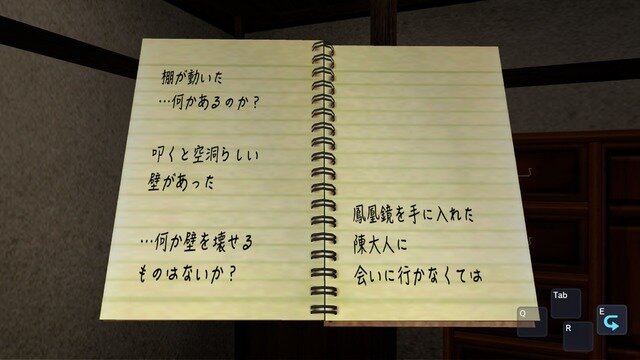 棚が動いた
…何かあるのか？
叩くと空洞らしい
壁があった
…何か壁を壊せる
ものはないか？
鳳凰鏡を手に入れた
陳大人に
会いに行かなくては
Tab
Q
E
R